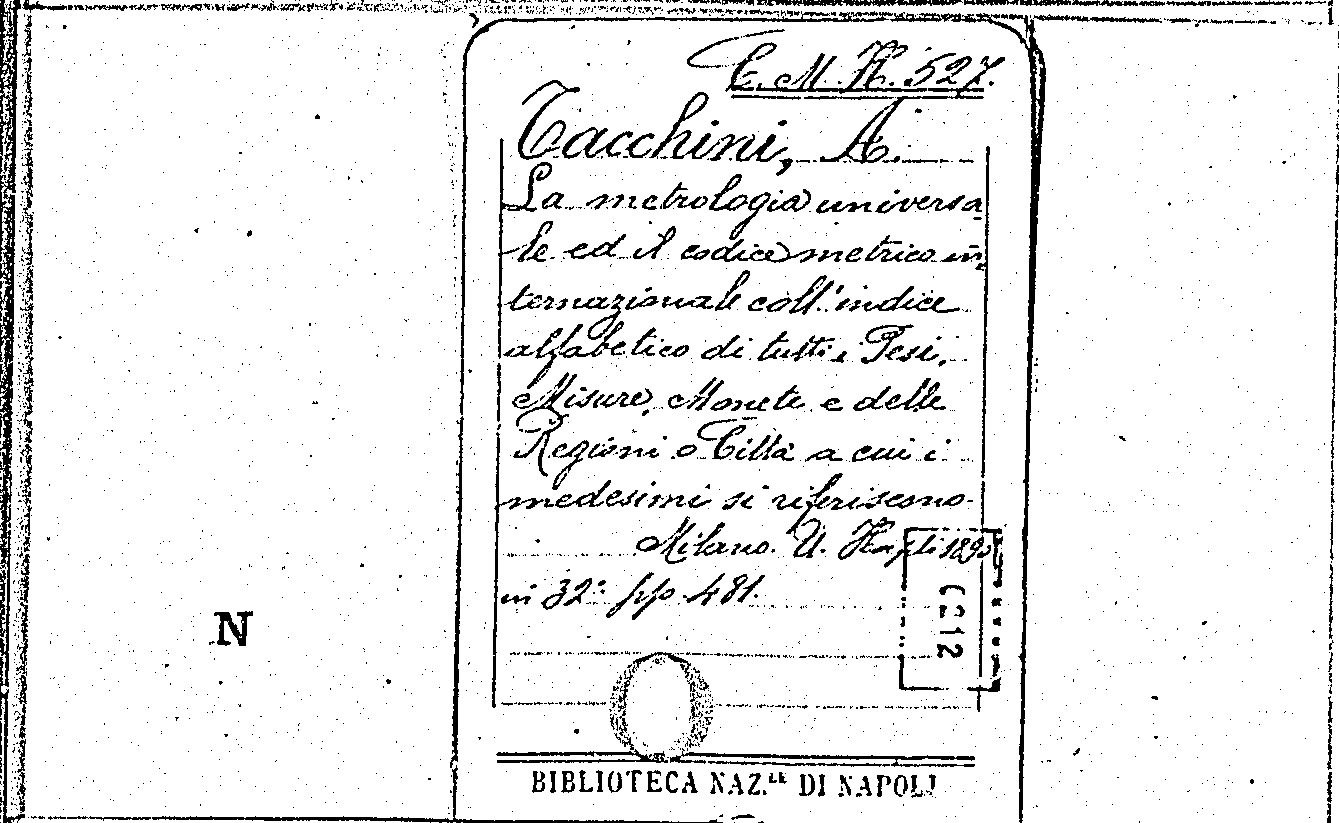 C. M. H. 527.
Tacchini, A.
La metrologia universa-
le ed il codice metrico in-
ternazionale coll'indice
alfabetico di tutti i Pesi,
Misure, Monete e delle
Regioni o Città a cui i
medesimi si riferiscono
Milano. U. Hoepli 1895
in 32° pp 481.
6212
N
BIBLIOTECA NAZ.LE DI NAPOLI